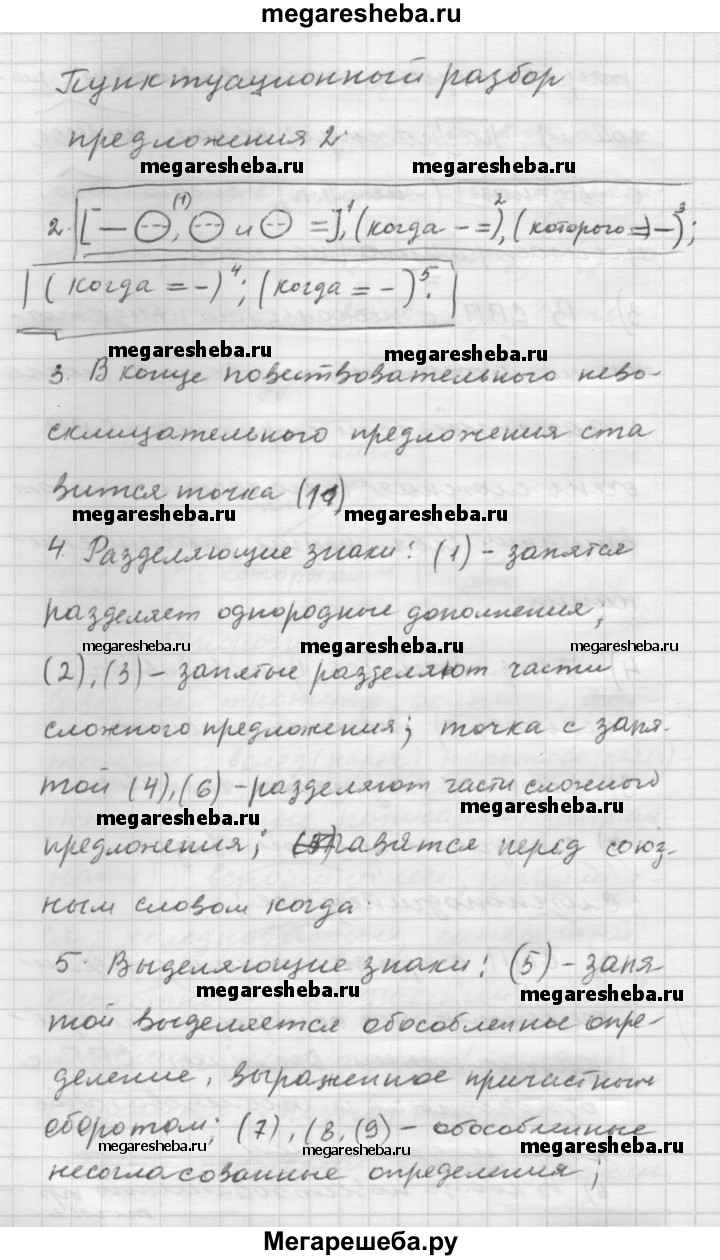 megaresheba.ru
Пунктуационный разбор
предложения 2.
megaresheba.ru megaresheba.ru
2. [— (1), и =],¹ (когда — =),² (которого = —)³;
(когда = —)⁴; (когда = —)⁵.
megaresheba.ru megaresheba.ru
3. В конце повествовательного нево-
склицательного предложения ста
вится точка (11)
megaresheba.ru megaresheba.ru
4. Разделяющие знаки: (1) - запятся
разделяет однородные дополнения,
megaresheba.ru megaresheba.ru megaresheba.ru
(2), (3) - запятые разделяют части
сложного предложения; точка с запя-
той (4), (6) - разделяют части сложного
megaresheba.ru megaresheba.ru
предложения; ставятся перед союз-
ным словом когда.
5. Выделяющие знаки: (5) - запя-
megaresheba.ru megaresheba.ru
той выделяется обособленное опре-
деление, выраженное причастным
оборотом; (7), (8, (9) - обособленные
megaresheba.ru megaresheba.ru megaresheba.ru
несогласованные определения;
Мегарешеба.ру